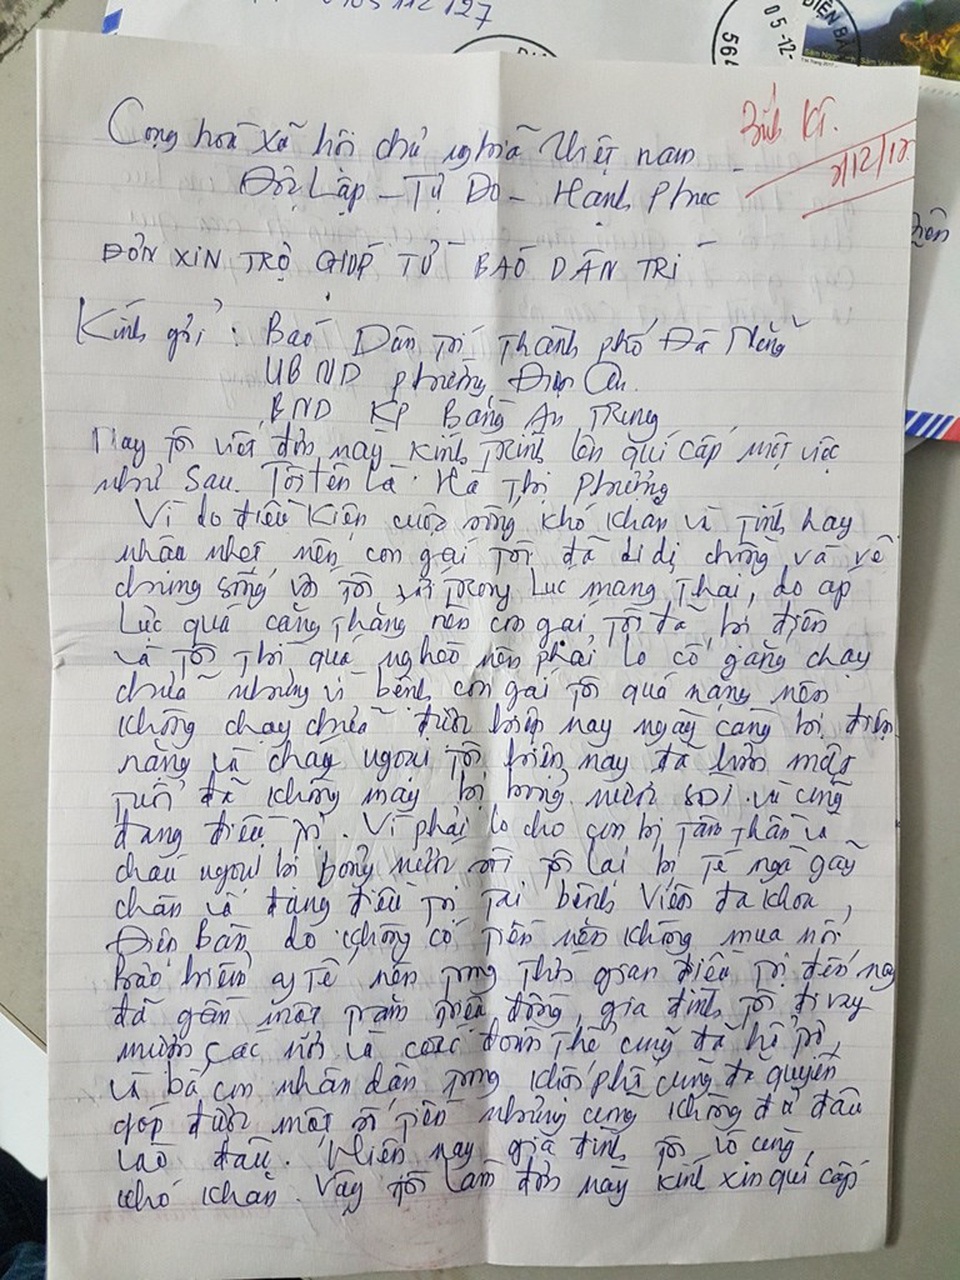 0105112127
ĐIỆN BÀ
05-12-
564
Cộng hoà xã hội chủ nghĩa Việt nam
Độc Lập - Tự Do - Hạnh Phúc
2/12/17
ĐƠN XIN TRỢ GIÚP TỪ BÁO DÂN TRÍ
Kính gửi : Báo Dân Trí Thành phố Đà Nẵng
UBND phường Điện An.
BND KP Bằng An Trung
Nay tôi viết đơn này kính trình lên quí cấp một việc
như sau. Tôi tên là : Hà Thị Phường
Vì do điều kiện cuộc sống khó khăn và tính hay
nhõng nhẽo nên con gái tôi đã li dị chồng và về
chung sống với tôi trong lúc mang thai, do áp
lực quá căng thẳng nên con gái tôi đã bị điên
và tôi thì quá nghèo nên phải lo cố gắng chạy
chữa nhưng vì bệnh con gái tôi quá nặng nên
không chạy chữa được hiện nay ngày càng bị điên
nặng và cháu ngoại tôi hiện nay đã hơn một
tuổi đã không may bị bỏng nước sôi và cũng
đang điều trị. Vì phải lo cho con bị tâm thần và
cháu ngoại bị bỏng nước sôi tôi lại bị té ngã gãy
chân và đang điều trị tại bệnh viện đa khoa,
Điện Bàn do không có tiền nên không mua nổi
bảo hiểm y tế nên trong thời gian điều trị đến nay
đã gần một trăm triệu đồng, gia đình tôi đi vay
mượn các nơi và các đoàn thể cũng đã hỗ trợ,
và bà con nhân dân trong khối phố cũng đã quyên
góp được một số tiền nhưng cũng không đủ đâu
vào đâu. Hiện nay gia đình tôi vô cùng
khó khăn. Vậy tôi làm đơn này kính xin quí cấp